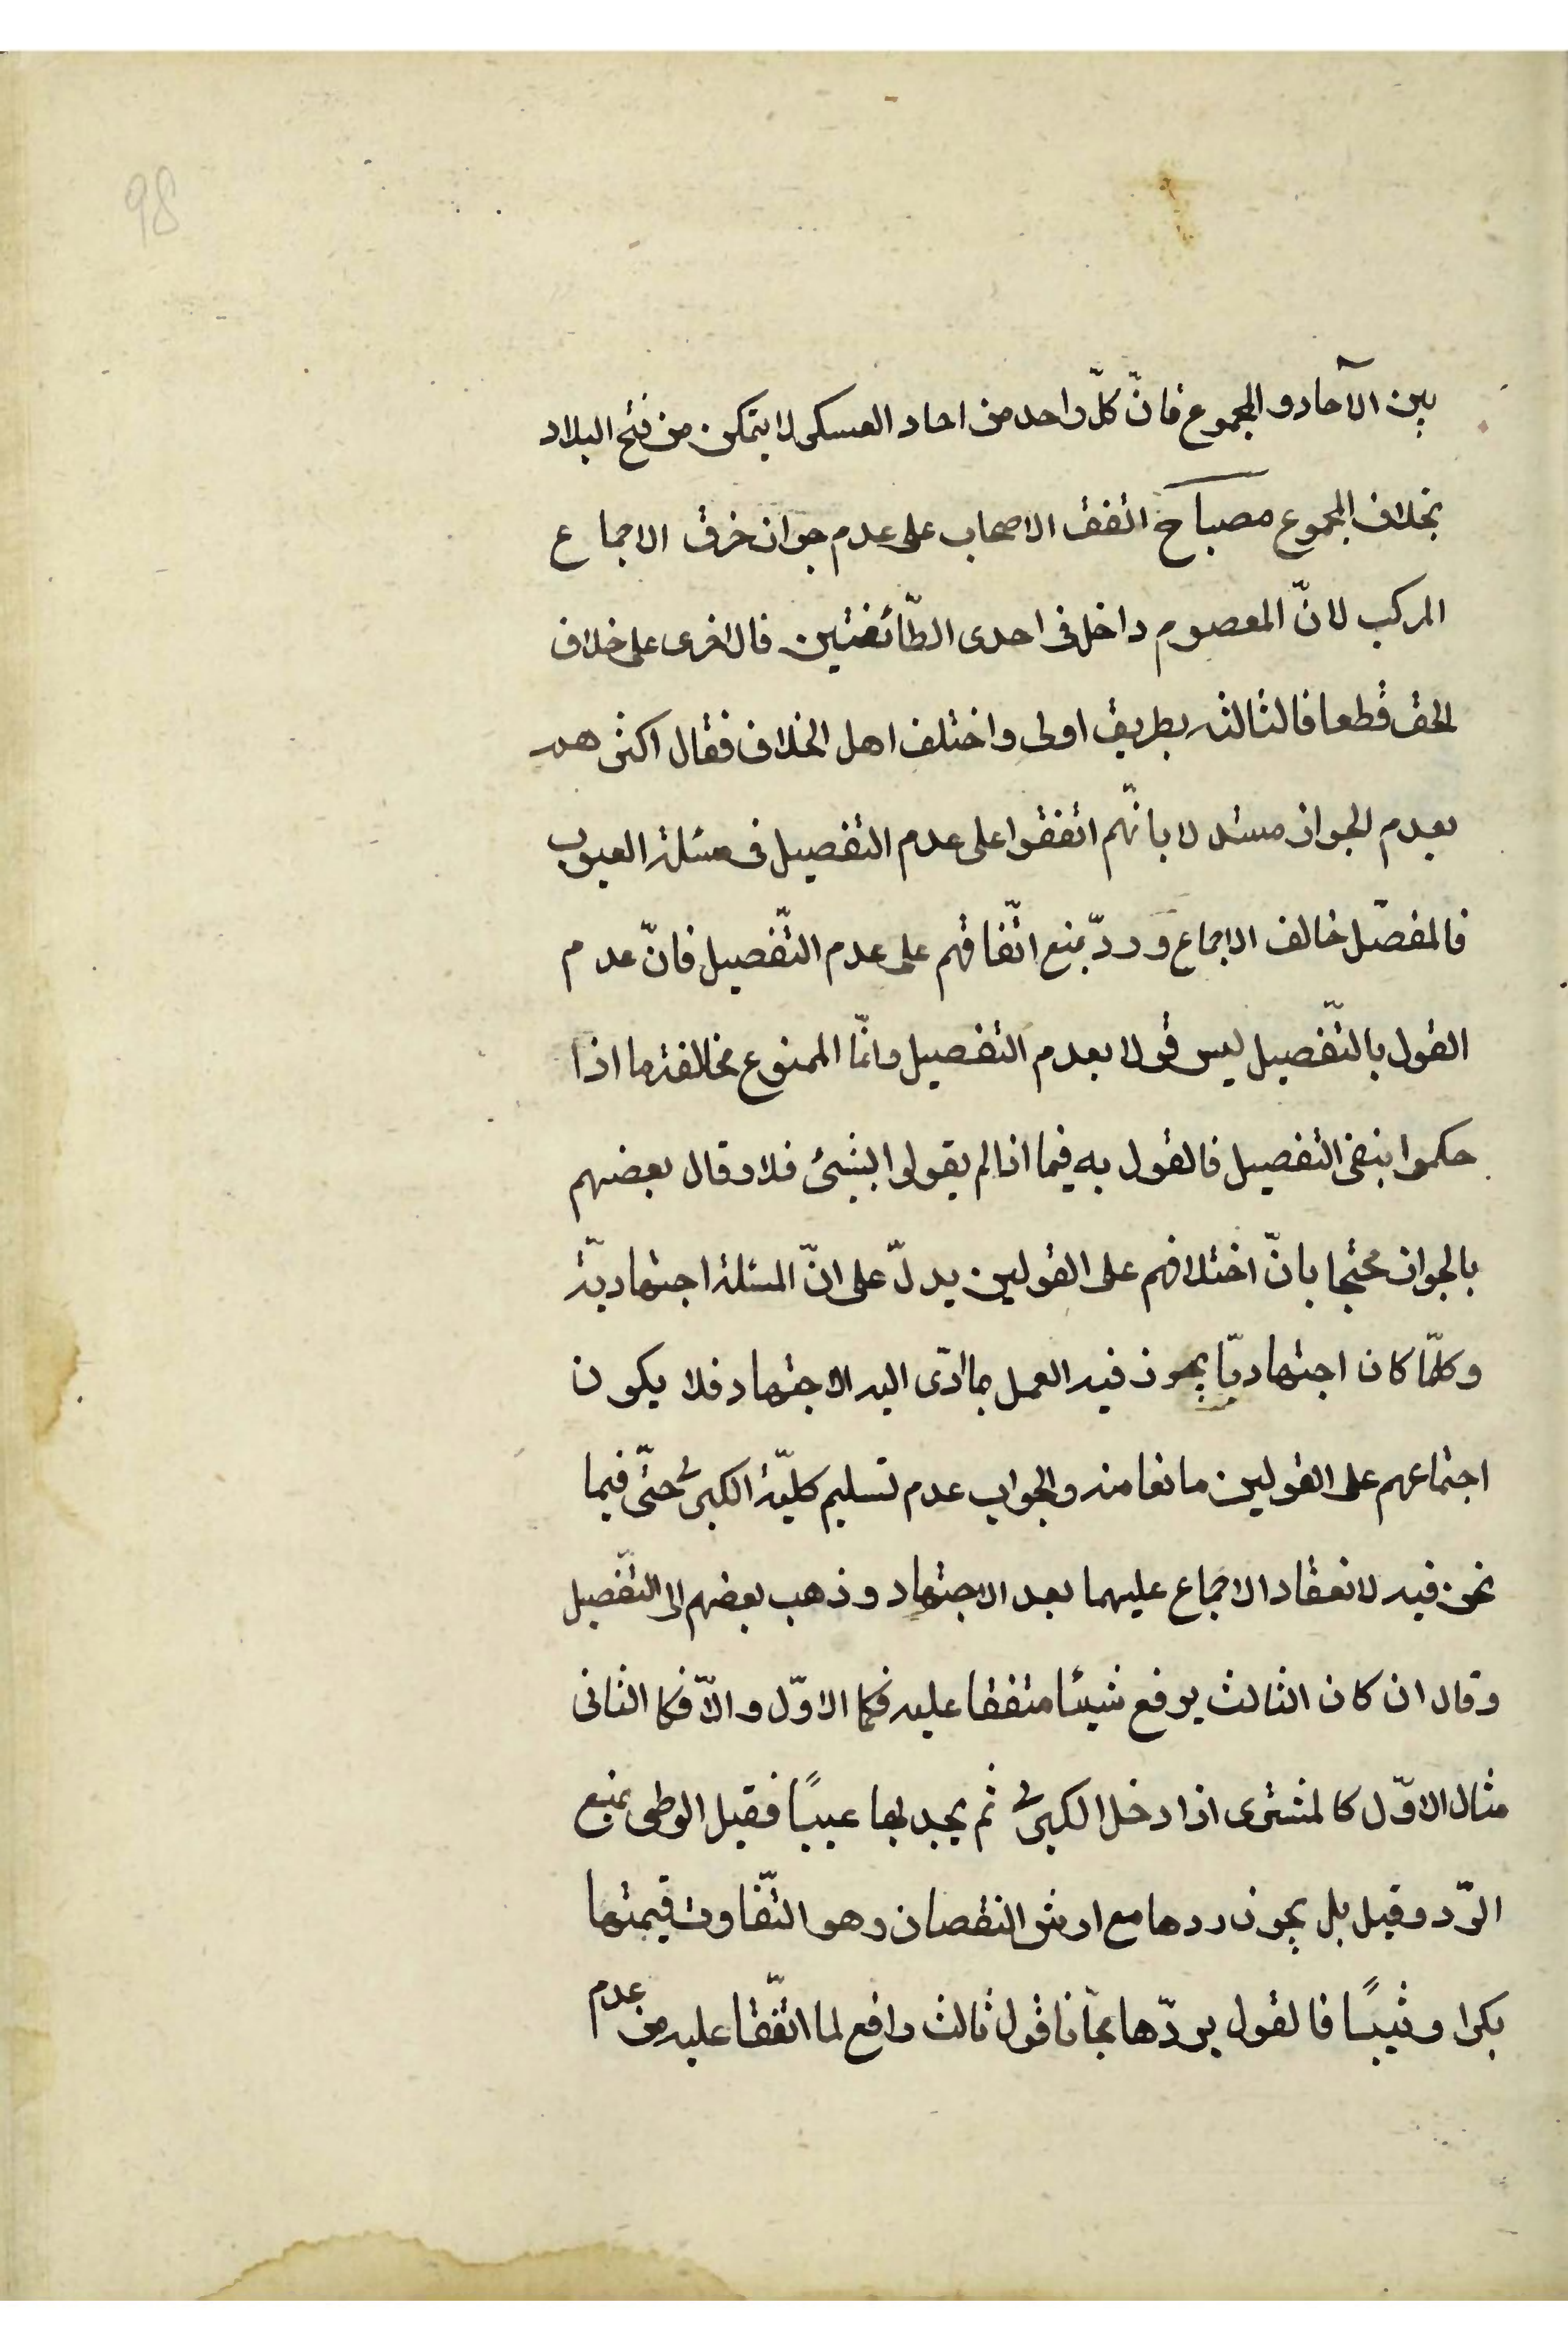 98
بين الآحاد والمجموع فانّ كلّ واحد من احاد العسكر لا يتمكن من فتح البلاد
بخلاف المجموع مصباح اتفق الاصحاب على عدم جواز خرق الاجماع
المركب لانّ المعصوم داخل فى احدى الطّائفتين فالاخرى على خلاف
الحق قطعا فالثالثة بطريق اولى واختلف اهل الخلاف فقال اكثرهم
بعدم الجواز مستدلا بانّهم اتفقوا على عدم التفصيل فى مسئلة العيوب
فالمفصّل خالف الاجماع وردّ بمنع اتّفاقهم على عدم التّفصيل فانّ عدم
القول بالتّفصيل ليس قولا بعدم التفصيل وانّما الممنوع مخالفة ما اذا
حكموا بنفى التفصيل فالقول به فيما اذا لم يقولوا بشىء فلا وقال بعضهم
بالجواز محتجا بانّ اختلافهم على القولين يدلّ على انّ المسئلة اجتهاديّة
وكلّما كان اجتهاديّا يجوز فيه العمل بما ادّى اليه الاجتهاد فلا يكون
اجتماعهم على القولين مانعا منه والجواب عدم تسليم كليّة الكبرى حتّى فيما
نحن فيه لانعقاد الاجماع عليهما بعد الاجتهاد وذهب بعضهم الى التّفصيل
وقال ان كان الثالث يرفع شيئا متفقا عليه فكما الاوّل والاّ فكما الثانى
مثال الاوّل كالمشترى اذا دخل الكبرى ثم يجد بها عيبًا فقيل الوطى يمنع
الرّد وقيل بل يجوز ردها مع ارش النقصان وهو التّفاوت قيمتها
بكرا وثيبًا فالقول بردّها مجّانا قول ثالث رافع لما اتّفقا عليه من عدم